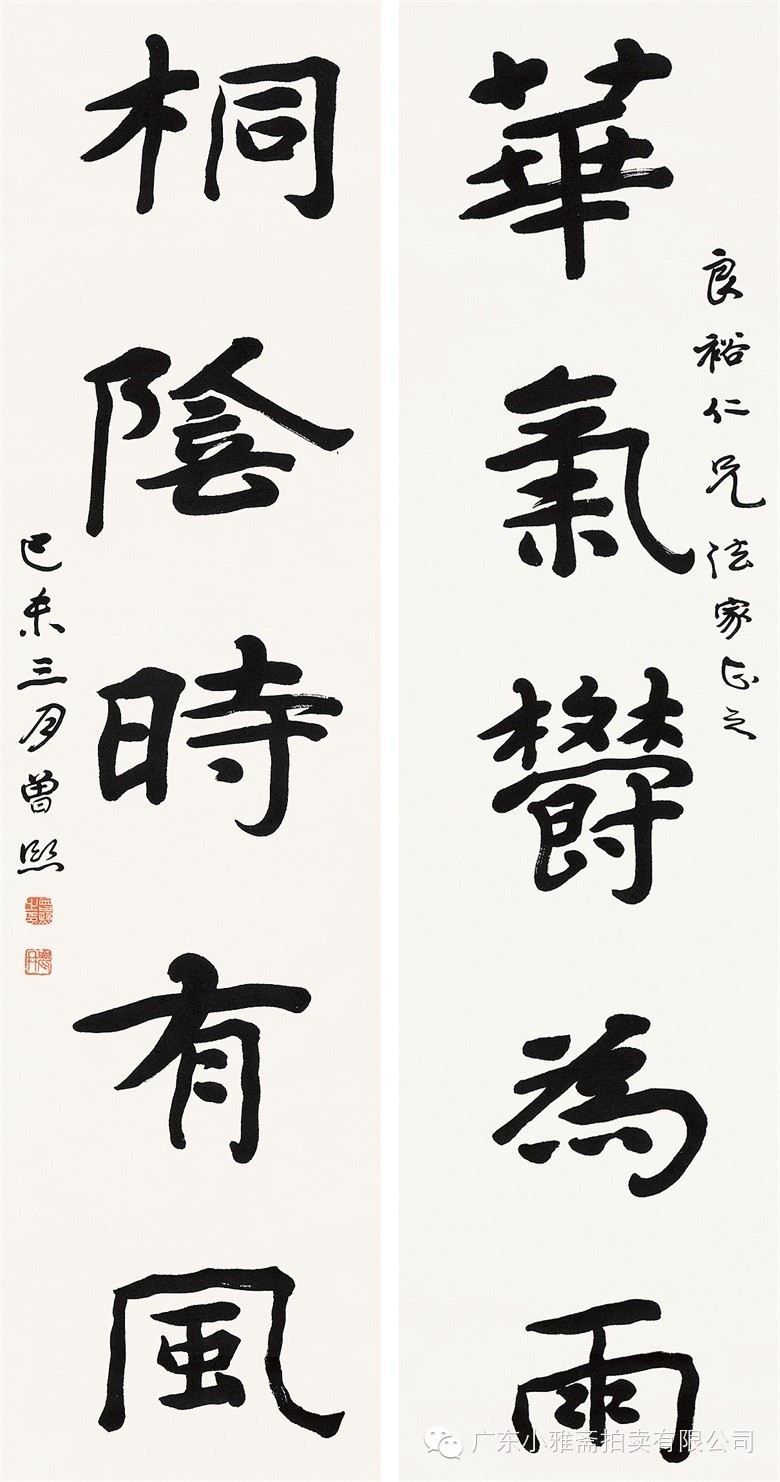 良裕仁兄法家正之
華氣鬱為雨
桐陰時有風
己未三月曾熙
广东小雅斋拍卖有限公司